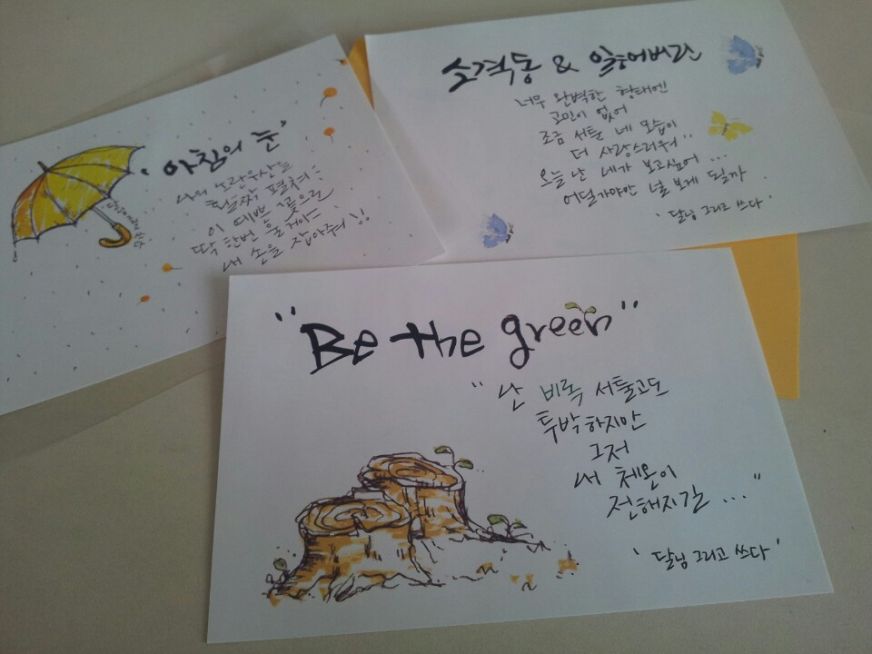 '아침의 눈'
너의 노란우산을
활짝 펼쳐줘
이 예쁜 꽃으로
딱 한번 흩날리는
내 손을 잡아줘!!
소격동 & 잃어버린
너무 완벽한 형태엔
고민이 없어
조금 서툰 네 모습이
더 사랑스러워..
오늘 난 네가 보고싶어 ...
어딜가야만 널 보게 될까
'달님 그리고 쓰다'
"Be the green"
"난 비록 서툴고도
투박하지만
그저
내 체온이
전해지길 ..."
'달님 그리고 쓰다'